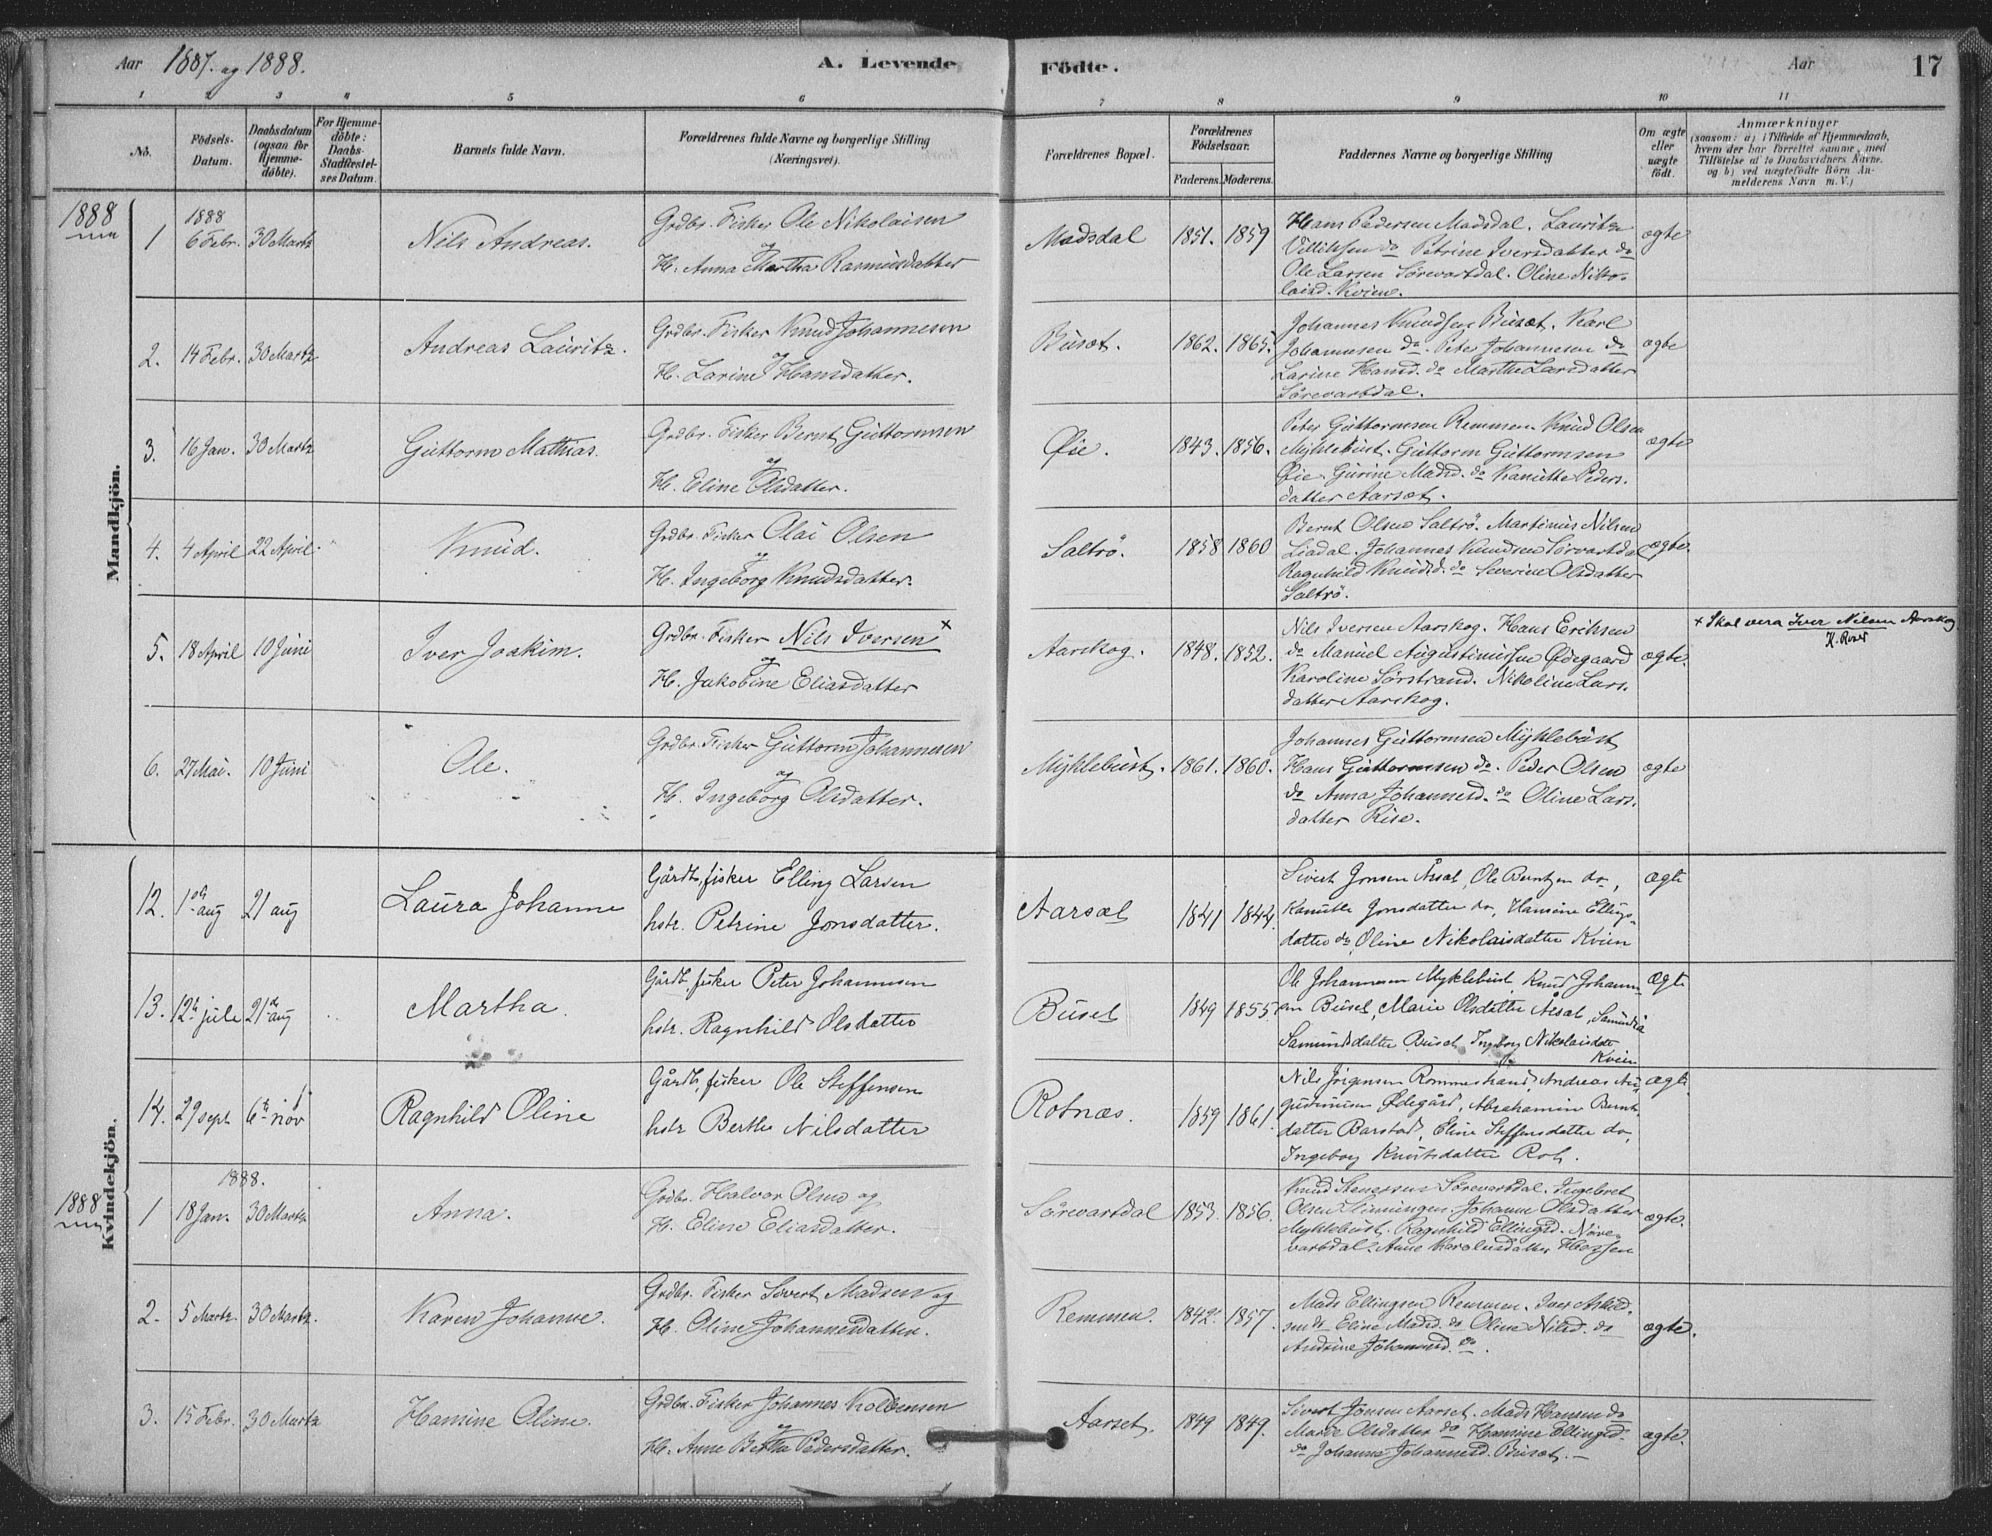 Aar 1887. og 1888. A. Levende Födte. Aar 17
1 2 3 4 5 6 7 8 9 10 11
No. Födsels-Datum. Daabsdatum (ogsaa for Hjemme-döbte). For Hjemme-döbte: Daabs-Stadfæstel-ses Datum. Barnets fulde Navn. Forældrenes fulde Navne og borgerlige Stilling (Næringsvei). Forældrenes Bopæl. Forældrenes Födselsaar. Faderens. Moderens. Faddernes Navne og borgerlige Stilling Om ægte eller uægte födt. Anmærkninger (saasom: a) i Tilfælde af Hjemmedaab, hvem der har forrettet samme, med Tilföielse af to Daabsvidners Navne, og b) ved uægtefödte Börn An-melderens Navn m. V.)
Mandkjön.
1888
1 1888 6 Febr. 30 Martz Nils Andreas. Grdbr. Fisker Ole Nikolaisen
og
H. Anna Martha Rasmusdatter
Madsdal 1851. 1859 Hans Pedersen Madsdal. Lauritz
do Petrine Iversdatter do
Ole Larsen Sörevartdal. Oline Niko-
laisd. Kvien.
ægte
2. 14 Febr. 30 Martz Andreas Lauritz. Grdbr. Fisker Knud Johannesen
og
H. Larine Hansdatter.
Buset. 1862. 1865. Johannes Knudsen Buset. Karl
Johannesen do. Peter Johannesen do
Larine Hansd. do Marthe Larsdatter
Sörevartdal.
ægte
3. 16 Jan. 30 Martz Guttorm Mathias. Grdbr. Fisker Bernt Guttormsen
og
H. Eline Olsdatter.
Øie. 1843. 1856. Peter Guttormsen Remmen. Knud Olsen
Myklebust. Guttorm Guttormsen
Øie. Gurine Madsd. do Kanutte Peders.
datter Aarset.
ægte
4. 4 April 22 April. Knud. Grdbr. Fisker Olai Olsen
og
H. Ingeborg Knudsdatter.
Saltrö. 1858 1860 Bernt Olsen Saltrö. Martinus Nilsen
Liadal. Johannes Knudsen Sörvartdal
Ragnhild Knudsd. do Severine Olsdatter
Saltrö.
ægte.
5. 18 April 10 Juni Iver Joakim. Grdbr. Fisker Nils Iversen x
og
H. Jakobine Eliasdatter
Aarskog. 1848. 1852. Nils Iversen Aarskog. Hans Eriksen
do Manuel Augustinussen Ødegaard
Karoline Sörstrand. Nikoline Lars.
datter Aarskog.
ægte. x Skal vera Iver Nilsen Aarskog
6. 27 Mai. 10 Juni Ole. Grdbr. Fisker Guttorm Johannesen
og
H. Ingeborg Olsdatter.
Myklebust. 1861. 1860. Johannes Guttormsen Myklebust
Hans Guttormsen do. Peder Olsen
do Anna Johannesd. do Oline Lars.
datter Rise.
ægte
Kvindekjön.
12. 1ste aug 21 aug Laura Johanne Gårdb, fisker Elling Larsen
hstr. Petrine Jonsdatter.
Aarsæt 1841 1844. Sivert Jonsen Åsæt, Ole Berntzen do,
Kanutte Jonsdatter do, Hansine Ellings-
datter do, Oline Nikolaisdatter Kvien
ægte
13. 12te jule 21de aug Martha. Gårdb, fisker Peter Johannesen
hstr. Ragnhild Olsdatter
Buset 1849 1855. Ole Johannesen Myklebust, Knud Johann-
sen Buset, Marie Olsdatter Åsæt,
Samundsdatter Buset, Ingeborg Nikolaisdatt
Kvien
Ægte
14. 29 sept. 6te nov Ragnhild Oline Gårdb, fisker Ole Steffensen
hstr Berthe Nilsdatter
Rotnæs. 1859 1861. Nils Jörgensen Rommestrand, Andreas Au-
gustinusen Ødegård, Abrahamine Bernts
datter Barstad, Eline Steffensdatter do,
Ingeborg Knutsdatter Rot.
ægte
1888
1 1888. 18 Jan. 30 Martz Anna. Grdbr. Halvor Olsen og
H. Eline Eliasdatter.
Sörevartdal 1853. 1856. Knud Stenersen Sörevartdal. Ingebret
Olsen. Johanne Olsdatter
Myklebust. Ragnhild Ellingsd. Nöre-
vartdal. Anne Karolusdatter
ægte.
2. 5 Martz. 30 Martz. Karen Johanne. Grdbr. Fisker Sivert Madsen og
H. Oline Johannesdatter.
Remmen. 1842. 1857. Mads Ellingsen Remmen.
do Eline Madsd. do Oline Nilsd. do
Andrine Johannesd. do.
ægte.
3. 15 Febr. 30 Martz Hansine Oline. Grdbr. Fisker Johannes Kolbensen
og
H. Anne Berthe Pedersdatter.
Aarset. 1849 1849. Sivert Jonsen Aarset. Mads Hansen do
Marie Olsdatter do Hansine Ellingsd.
do Johanne Johannesd. Buset.
ægte.